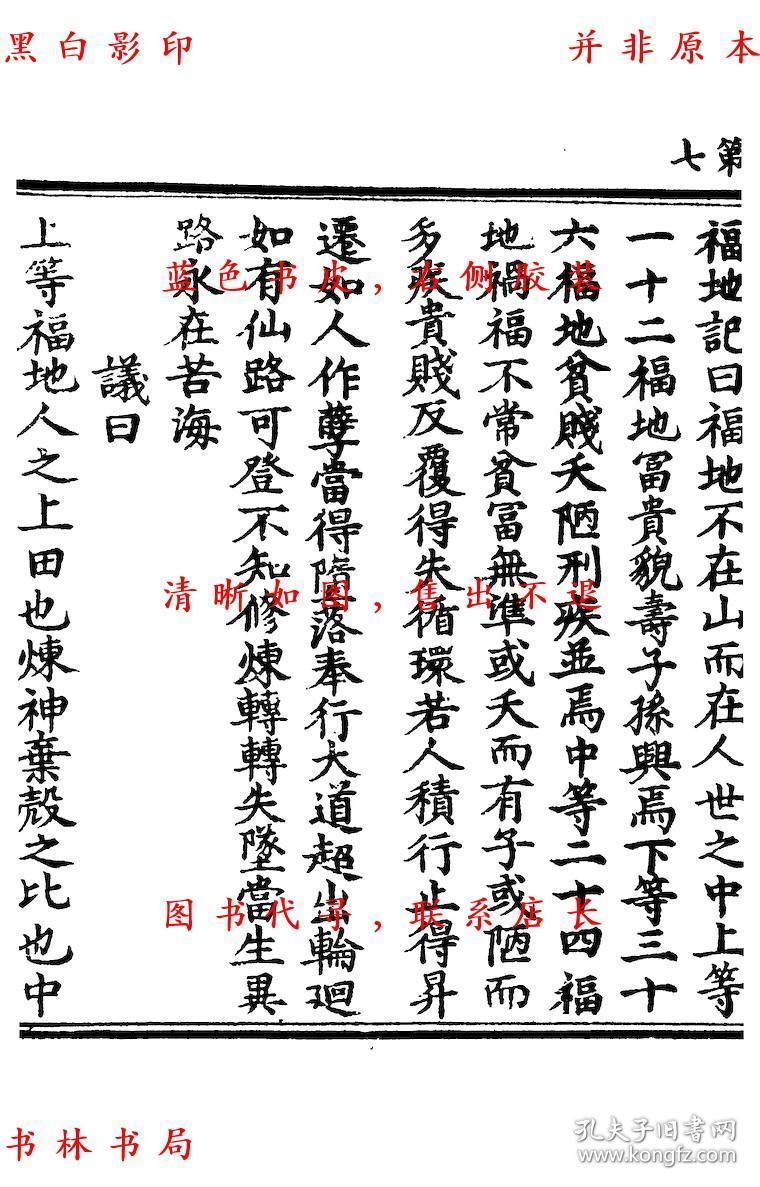 黑白影印
并非原本
第
七
福地記曰福地不在山而在人世之中上等
一十二福地冨貴貌壽子孫興焉下等三十
六福地貧賤夭陋刑疾並焉中等二十四福
地禍福不常貧冨無準或夭而有子或陋而
多疾貴賤反覆得失循環若人積行止得昇
遷如人作孽當得墮落奉行大道超出輪廻
如有仙路可登不知修煉轉轉失墜當生異
路永在苦海
議曰
上等福地人之上田也煉神棄殼之比也中
蓝色书皮，右侧胶装
清晰如图，售出不退
图书代寻，联系店长
书林书局
孔夫子旧书网
www.kongfz.com